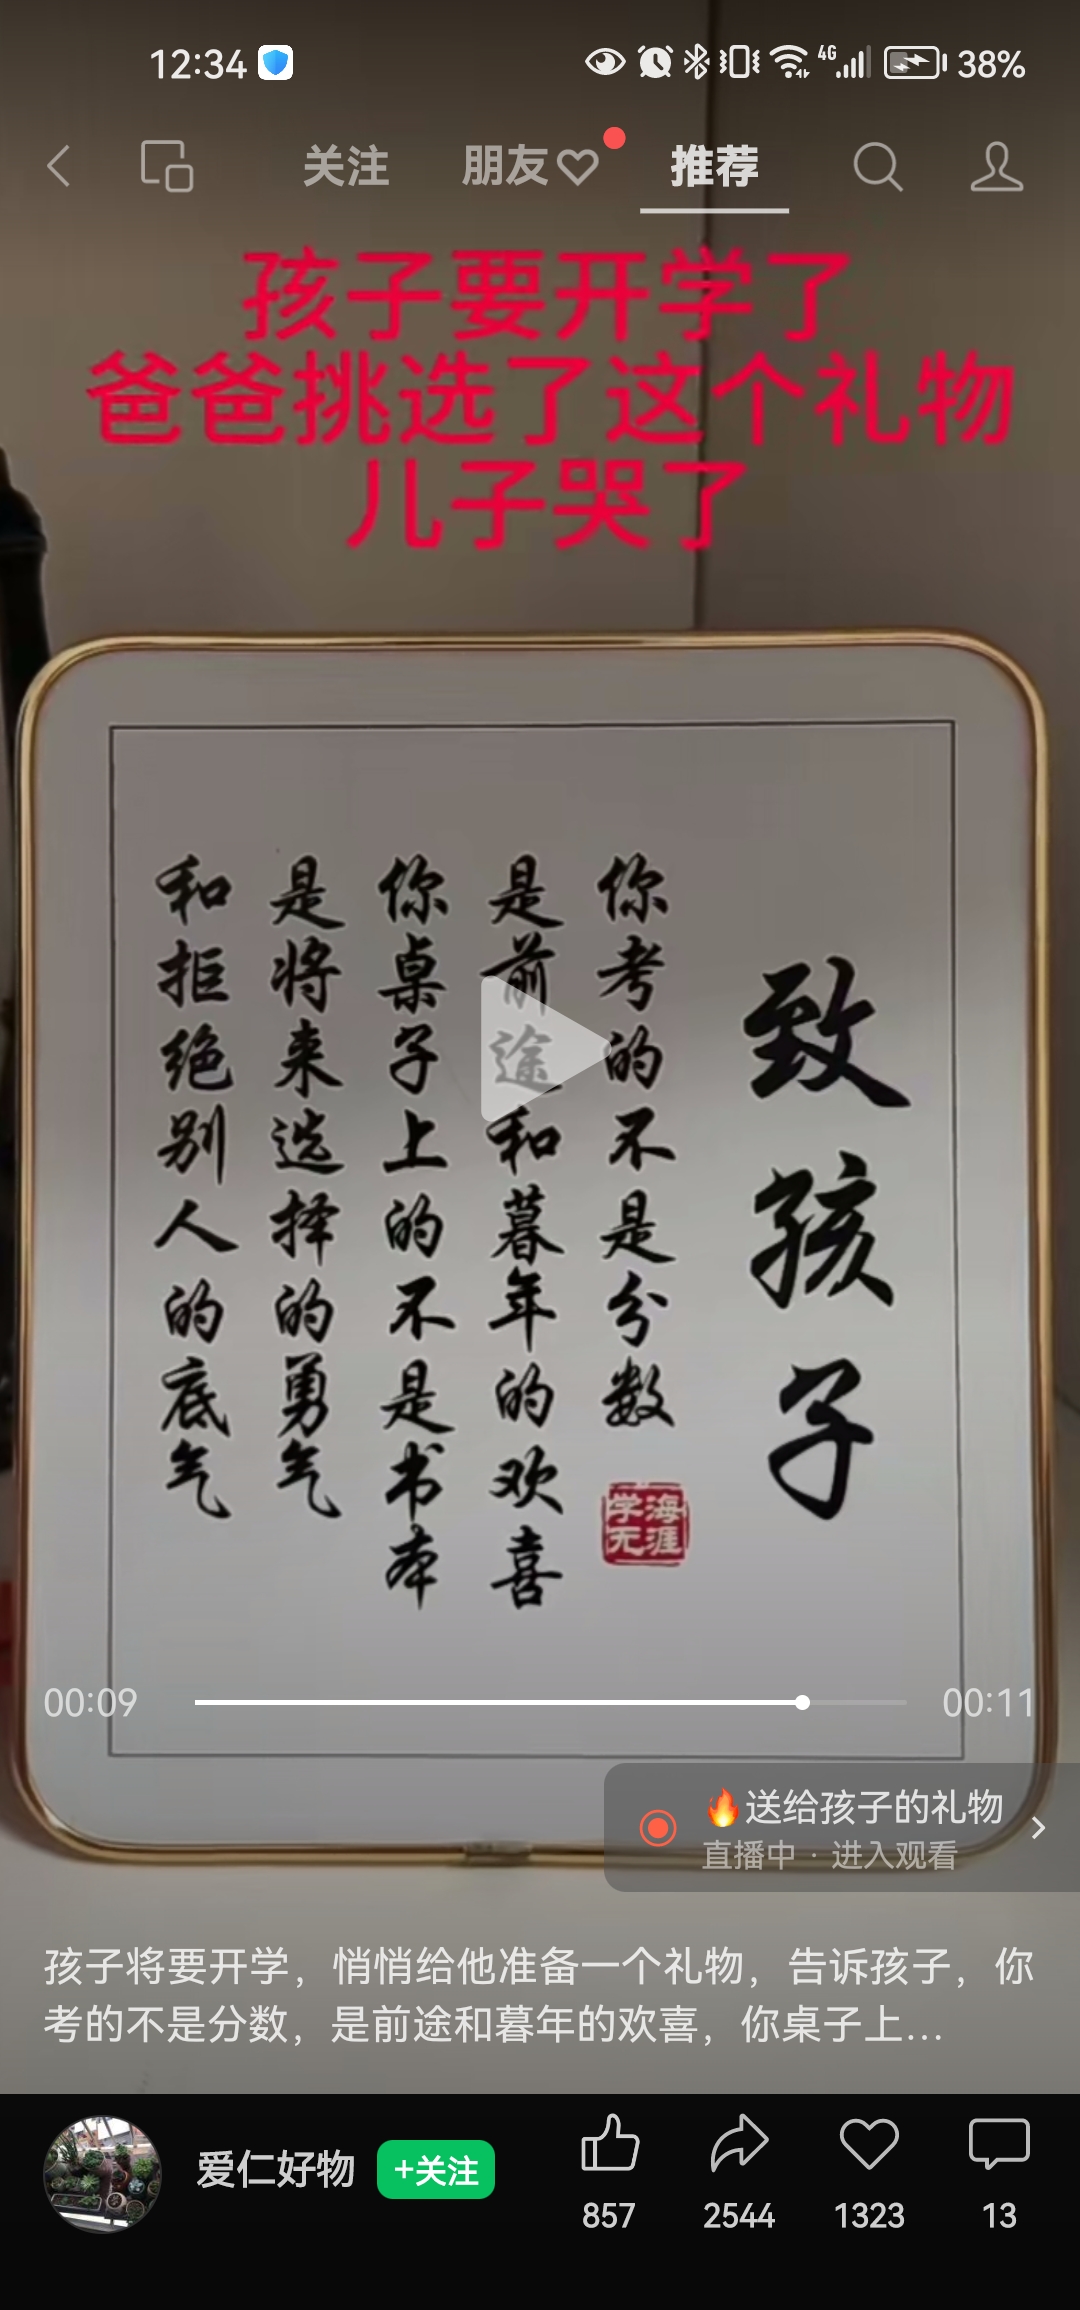 12:34
4G
38%
关注
朋友
推荐
孩子要开学了
爸爸挑选了这个礼物
儿子哭了
致孩子
你考的不是分数
是前途和暮年的欢喜
你桌子上的不是书本
是将来选择的勇气
和拒绝别人的底气
学海无涯
00:09
00:11
🔥送给孩子的礼物
直播中 · 进入观看
孩子将要开学，悄悄给他准备一个礼物，告诉孩子，你
考的不是分数，是前途和暮年的欢喜，你桌子上...
爱仁好物
+关注
857
2544
1323
13